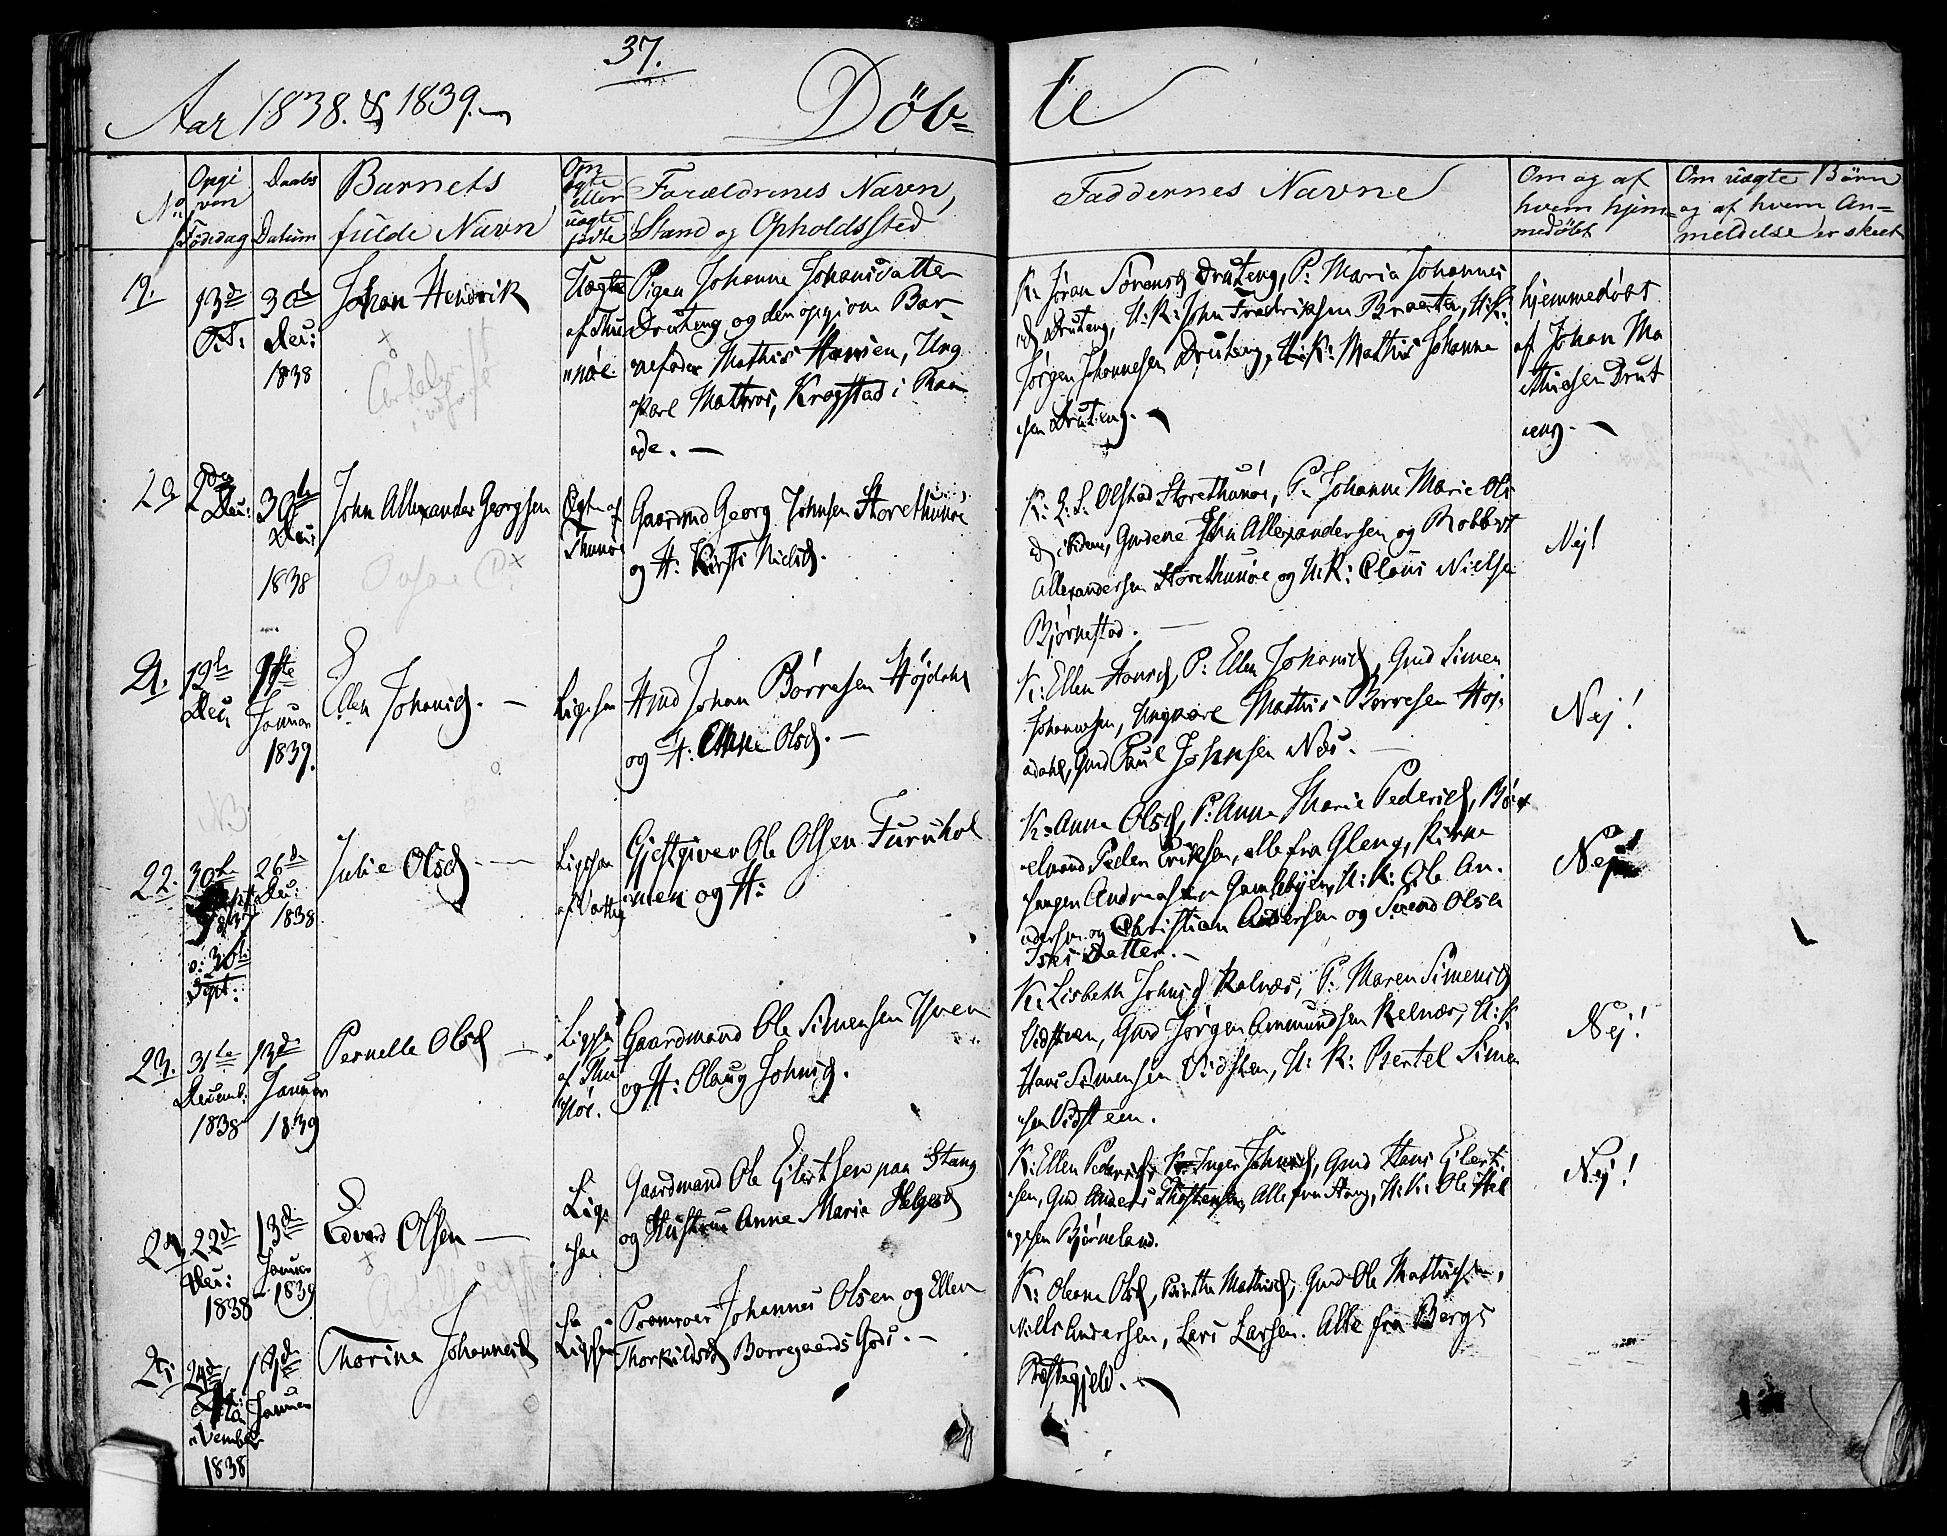 37.
Aar 1838. & 1839.
Døb=
te
No
Opgi
ven
Fødedag
Daabs
Datum
Barnets
fulde Navn
Om
ægte
eller
uægte
fødte
Forældrenes Navn,
Stand og Opholdssted
Faddernes Navne
Om og af
hvem hjem=
medøbt
Om uægte Børn
og af hvem An=
meldelse er skeet
19.
13d
30te
Dec:
1838
Johan Hendrik
Uægte
af Thu
nøe
Pigen Johanne Johansdatter
Druteng og den opgivne Bar-
nefader Mathis Hansen, Ung
karl Matros, Krogstad i Raa
de. —
K: Jøran Sørensd Druteng, P: Maria Johannes
d Druteng, U:K: John Fredriksen Braaten, U:K:
Jørgen Johannesen Druteng, U:K: Mathis Johanne
sen Druteng. —
hjemmedøbt
af Johan Ma
thiesen Drut
eng. —
20
2den
Dec:
30te
Dec:
1838
John Allexander Georgsen
Ægte af
Thunøe
Gaarmd Georg Johnsen Storethunøe
og H: Kirsti Nielsd.
K: L. S. Olstad Storethunøe, P: Johanne Marie Ols
d ibidem, Gmdene John Allexandersen og Robbert
Allexandersen Storethunøe og U:K: Claus Nielse
Bjørnestad. —
Nej!
21.
19de
Dec
1ste
Januar
1839.
Ellen Johansd. —
Ligesaa
Hmd Johan Børresen Højdahl
og H: Anne Olsd. —
K: Ellen Hansd, P: Ellen Johansd, Gmd Simen
Johannesen, Ungkarl Mathis Børresen Høj-
dahl, Gmd Paul Johnsen Næs. —
Nej!
22.
30te
Sept.
1837
ɔ: 30te
Sept:
26d
Dec:
1838.
Julie Olsd. —
Ligesaa
Gjestgiver Ole Olsen Furuhol
men og H:
K: Anne Olsd, P: Anne Marie Pedersd, Bør
elmand Peder Eriksen, alle fra Gleng, Kirke
sangen Andreas
Gamlebyen, U:K: Ole An-
dersen og Christian Andersen og Svend Olsen
datter. —
Nej!
23.
31te
Decemb:
1838
13d
Januar
1839
Pernelle Olsd —
Ligesaa
af Thu
nøe.
Gaardmand Ole Simensen Hven
og H: Olaug Johnsd.
K: Lisbeth Johnsd Kalnæs, P: Maren Simensd
Vidsteen, Gmd Jørgen Ammundsen Kelnæs, U:K
Hans Simensen Vidsten, U:K: Bertel Simen
sen Vidsteen.
Nej!
24
22d
Dec:
1838
13d
Januar
1839
Edvard Olsen —
Lige
saa
Gaardmand Ole Ejlertsen paa Stang
og Hustrue Anne Maria Helgesd
K: Ellen Pedersd, K: Inger Johnsd, Gmd Hans Ejlert
sen, Gmd Anders Thostensen, Alle fra Stang, U:K: Ole Hel
gesen Bjørneland.
Nej!
25
24d
November
1838
Januar
Thorine Johannesd
Ligesaa
Promroer Johannes Olsen og Ellen
Thorkildsd Borregaards Gods. —
K: Oleane Olsd, Birthe Mathisd, Gmd Ole Mathisen,
Nills Andersen, Lars Larsen. Alle fra Bergs
Præstegjeld. —